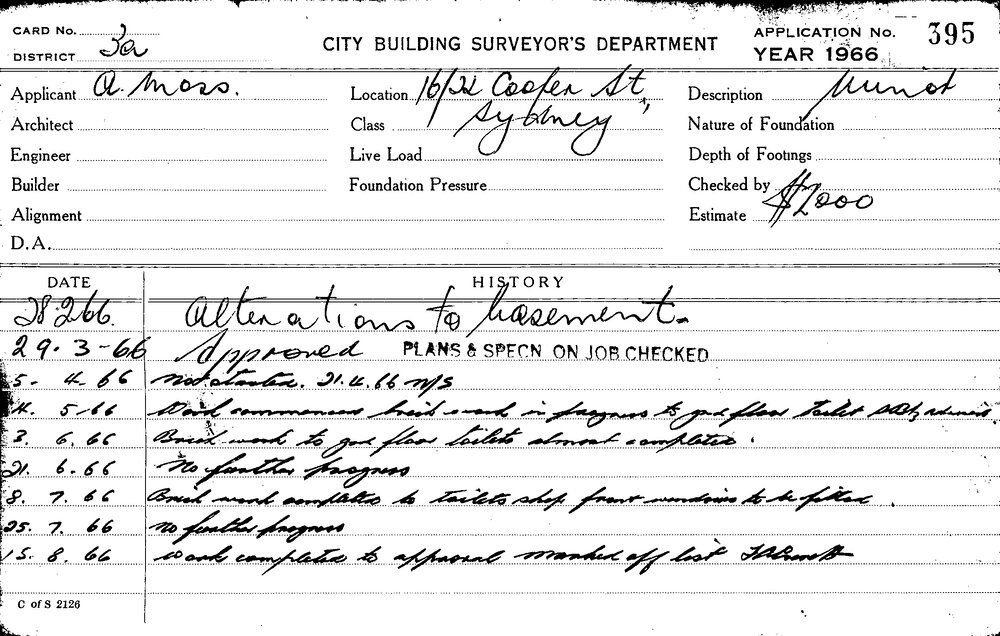 CARD No.
DISTRICT 3a
CITY BUILDING SURVEYOR'S DEPARTMENT
APPLICATION No. 395
YEAR 1966
Applicant A. Moss.
Location 16/22 Cooper St,
Sydney
Description
Architect
Class
Nature of Foundation
Engineer
Live Load
Depth of Footings
Builder
Foundation Pressure
Checked by
Alignment
Estimate $2000
D.A.
DATE HISTORY
28.2.66. Alterations to basement.
29.3-66 Approved PLANS & SPECN ON JOB CHECKED
5. 4. 66 Not started. 21.4.66 N/S
4. 5-66 Work commenced brick work in progress to grd floor toilet
3. 6. 66 Brick work to grd floor toilets almost completed.
21. 6. 66 No further progress
8. 7. 66 Brick work completed to toilets shop front windows to be fitted.
25. 7. 66 No further progress
15. 8. 66 Work completed to approval marked off list
C of S 2126